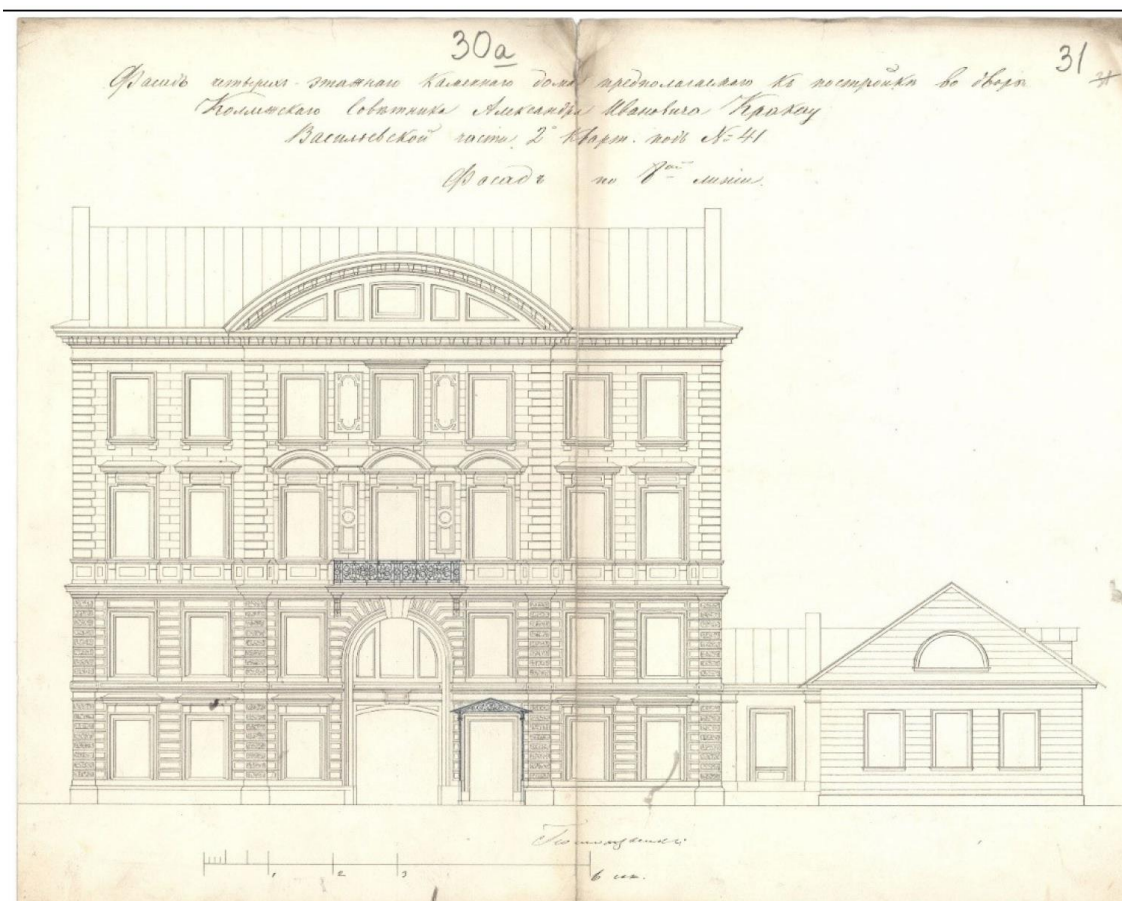 30а
31
Фасадъ четырехъ-этажнаго каменнаго дома предполагаемаго къ постройкѣ во дворѣ
Коллежскаго Совѣтника Александра Ивановича Кракау
Васильевской части 2º Кварт. подъ №: 41
Фасадъ по линіи.
1 2 3 6 саж.